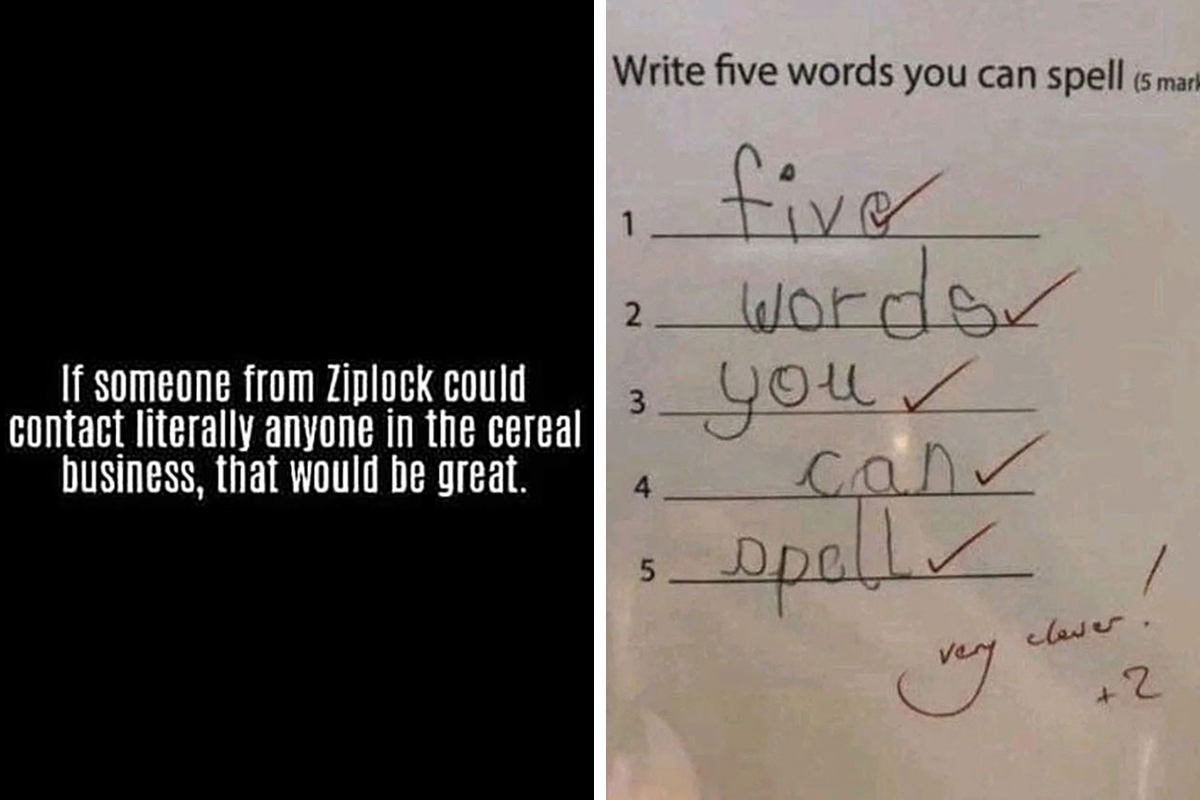 If someone from Ziplock could
contact literally anyone in the cereal
business, that would be great.
Write five words you can spell (5 mark
1 five
2 words
3 you
4 can
5 spell
very clever!
+2